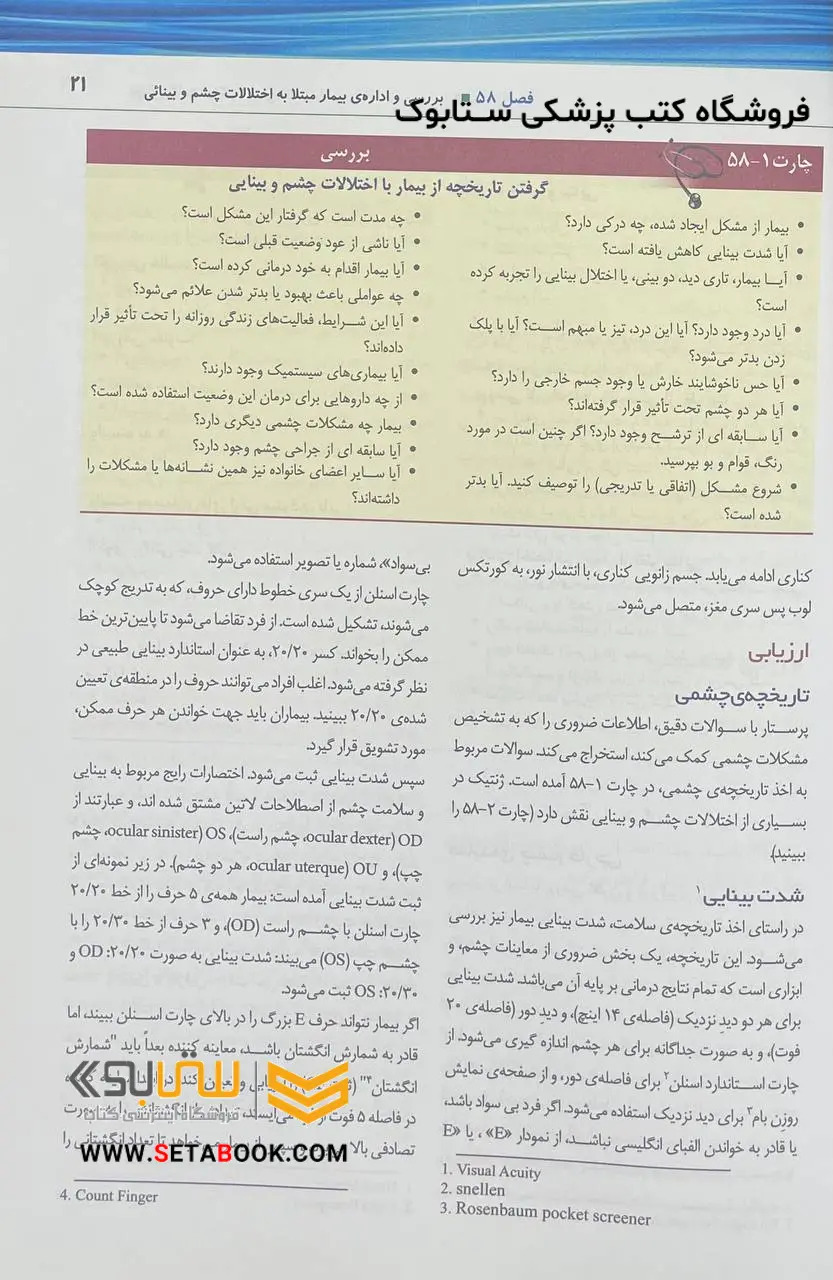 فصل ۵۸ ■ بررسی و اداره‌ی بیمار مبتلا به اختلالات چشم و بینائی
۲۱
فروشگاه کتب پزشکی ستابوک
چارت ۱-۵۸
بررسی
گرفتن تاریخچه از بیمار با اختلالات چشم و بینایی
• بیمار از مشکل ایجاد شده، چه درکی دارد؟
• آیا شدت بینایی کاهش یافته است؟
• آیا بیمار، تاری دید، دو بینی، یا اختلال بینایی را تجربه کرده
است؟
• آیا درد وجود دارد؟ آیا این درد، تیز یا مبهم است؟ آیا با پلک
زدن بدتر می‌شود؟
• آیا حس ناخوشایند خارش یا وجود جسم خارجی را دارد؟
• آیا هر دو چشم تحت تأثیر قرار گرفته‌اند؟
• آیا سابقه ای از ترشح وجود دارد؟ اگر چنین است در مورد
رنگ، قوام و بو بپرسید.
• شروع مشکل (اتفاقی یا تدریجی) را توصیف کنید. آیا بدتر
شده است؟
• چه مدت است که گرفتار این مشکل است؟
• آیا ناشی از عود وضعیت قبلی است؟
• آیا بیمار اقدام به خود درمانی کرده است؟
• چه عواملی باعث بهبود یا بدتر شدن علائم می‌شود؟
• آیا این شرایط، فعالیت‌های زندگی روزانه را تحت تأثیر قرار
داده‌اند؟
• آیا بیماری‌های سیستمیک وجود دارند؟
• از چه داروهایی برای درمان این وضعیت استفاده شده است؟
• بیمار چه مشکلات چشمی دیگری دارد؟
• آیا سابقه ای از جراحی چشم وجود دارد؟
• آیا سایر اعضای خانواده نیز همین نشانه‌ها یا مشکلات را
داشته‌اند؟
کناری ادامه می‌یابد. جسم زانویی کناری، با انتشار نور، به کورتکس
لوب پس سری مغز، متصل می‌شود.
ارزیابی
تاریخچه‌ی چشمی
پرستار با سوالات دقیق، اطلاعات ضروری را که به تشخیص
مشکلات چشمی کمک می‌کند، استخراج می‌کند. سوالات مربوط
به اخذ تاریخچه‌ی چشمی، در چارت ۱-۵۸ آمده است. ژنتیک در
بسیاری از اختلالات چشم و بینایی نقش دارد (چارت ۲-۵۸ را
ببینید).
شدت بینایی۱
در راستای اخذ تاریخچه‌ی سلامت، شدت بینایی بیمار نیز بررسی
می‌شود. این تاریخچه، یک بخش ضروری از معاینات چشم، و
ابزاری است که تمام نتایج درمانی بر پایه آن می‌باشد. شدت بینایی
برای هر دو دید نزدیک (فاصله‌ی ۱۴ اینچ)، و دید دور (فاصله‌ی ۲۰
فوت)، و به صورت جداگانه برای هر چشم اندازه گیری می‌شود. از
چارت استاندارد اسنلن۲ برای فاصله‌ی دور، و از صفحه‌ی نمایش
روزن بام۳ برای دید نزدیک استفاده می‌شود. اگر فرد بی سواد باشد،
یا قادر به خواندن الفبای انگلیسی نباشد، از نمودار «E» ، یا «E
1. Visual Acuity
2. snellen
3. Rosenbaum pocket screener
بی‌سواد»، شماره یا تصویر استفاده می‌شود.
چارت اسنلن از یک سری خطوط دارای حروف، که به تدریج کوچک
می‌شوند، تشکیل شده است. از فرد تقاضا می‌شود تا پایین‌ترین خط
ممکن را بخواند. کسر ۲۰/۲۰، به عنوان استاندارد بینایی طبیعی در
نظر گرفته می‌شود. اغلب افراد می‌توانند حروف را در منطقه‌ی تعیین
شده‌ی ۲۰/۲۰ ببینید. بیماران باید جهت خواندن هر حرف ممکن،
مورد تشویق قرار گیرد.
سپس شدت بینایی ثبت می‌شود. اختصارات رایج مربوط به بینایی
و سلامت چشم از اصطلاحات لاتین مشتق شده اند، و عبارتند از
OD (ocular dexter، چشم راست)، OS (ocular sinister، چشم
چپ)، و OU (ocular uterque، هر دو چشم). در زیر نمونه‌ای از
ثبت شدت بینایی آمده است: بیمار همه‌ی ۵ حرف را از خط ۲۰/۲۰
چارت اسنلن با چشم راست (OD)، و ۳ حرف از خط ۲۰/۳۰ را با
چشم چپ (OS) می‌بیند: شدت بینایی به صورت OD :۲۰/۲۰ و
OS :۲۰/۳۰ ثبت می‌شود.
اگر بیمار نتواند حرف E بزرگ را در بالای چارت اسنلن ببیند، اما
قادر به شمارش انگشتان باشد، معاینه کننده بعداً باید "شمارش
انگشتان۴"
در فاصله ۵ فوت از
تصادفی بالا تعداد انگشتانی را
4. Count Finger
ستابوک
فروشگاه اینترنتی کتاب
WWW.SETABOOK.COM